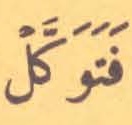 فَتَوَكَّلْ